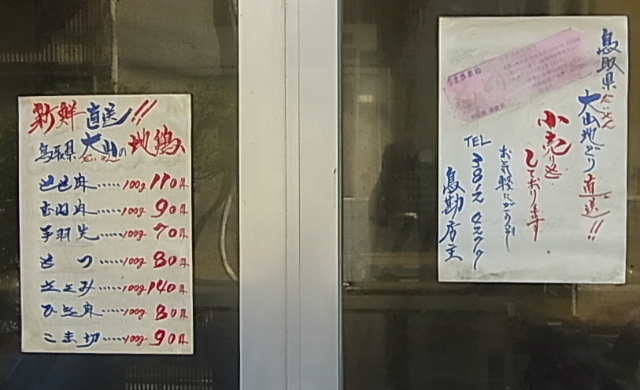 新鮮直送!!
鳥取県大山の地鶏
だいせん
もも肉……100g110円
むね肉……100g90円
手羽先……100g70円
もつ……100g80円
ささみ……100g140円
ひき肉……100g80円
こま切……100g90円
鳥取県大山地どり直送!!
だいせん
小売り迄
しております
お気軽にどうぞ
TEL
鳥勘店主